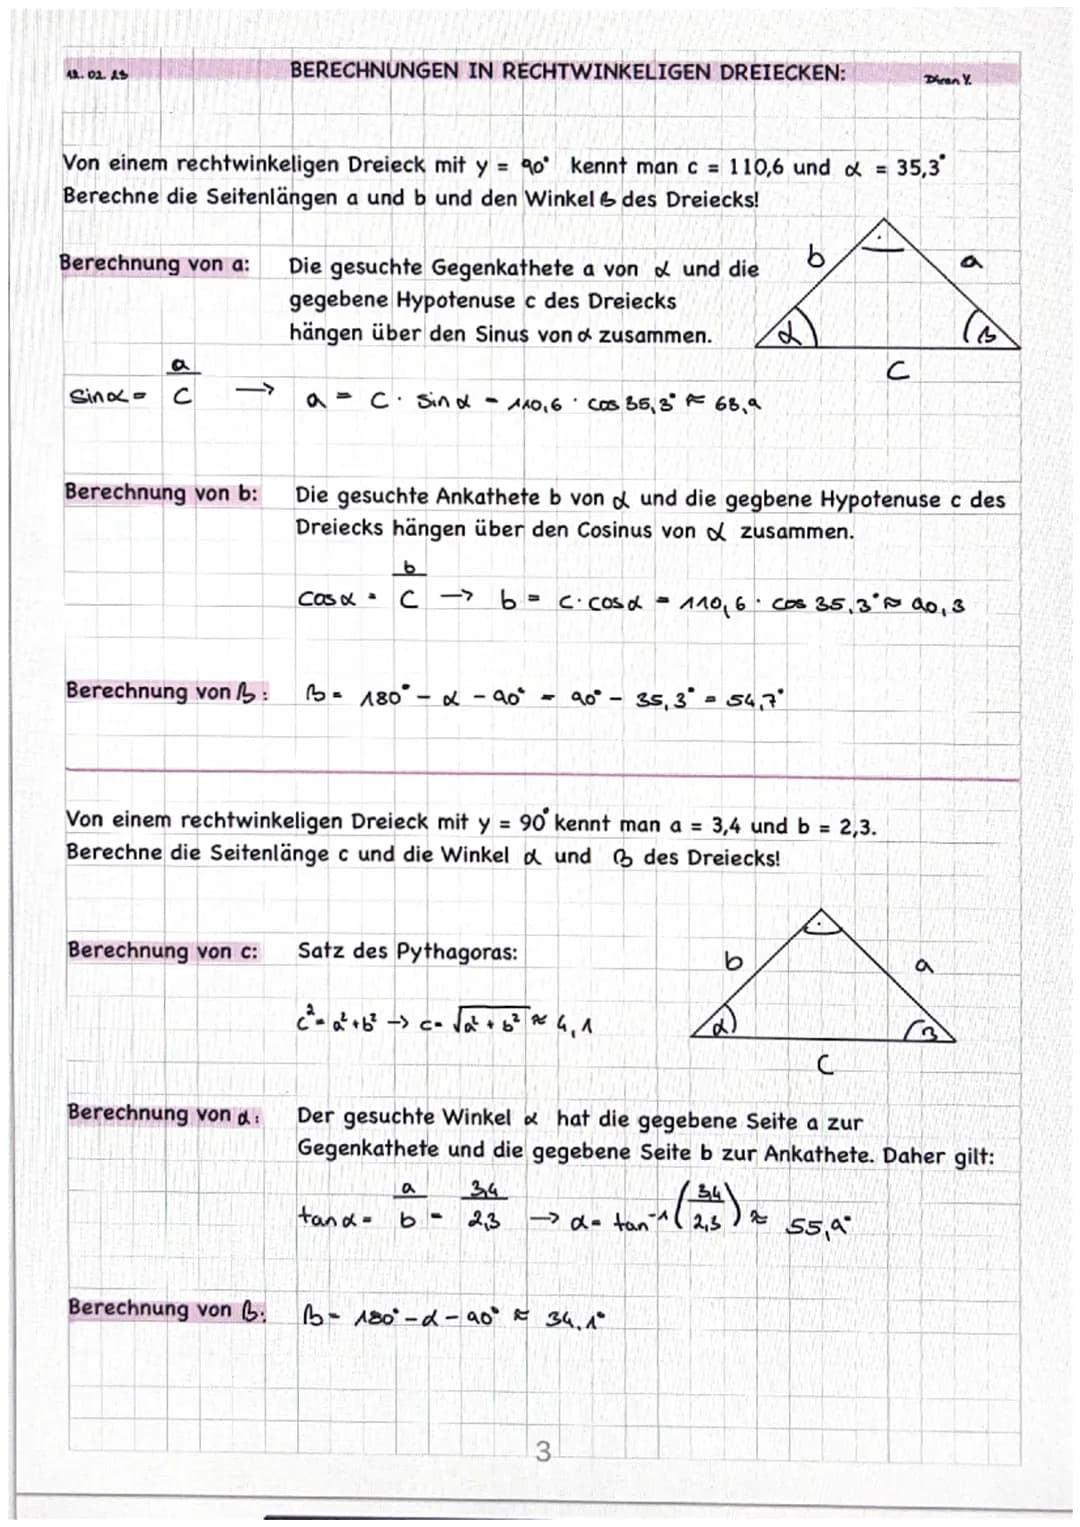 12.02.23 BERECHNUNGEN IN RECHTWINKELIGEN DREIECKEN: Diren Y.
Von einem rechtwinkeligen Dreieck mit y = 90° kennt man c = 110,6 und α = 35,3°
Berechne die Seitenlängen a und b und den Winkel β des Dreiecks!
b a
α β
C
Berechnung von a: Die gesuchte Gegenkathete a von α und die
gegebene Hypotenuse c des Dreiecks
hängen über den Sinus von α zusammen.
sin α = a/c → a = c · sin α = 110,6 · cos 35,3° ≈ 63,9
Berechnung von b: Die gesuchte Ankathete b von α und die gegbene Hypotenuse c des
Dreiecks hängen über den Cosinus von α zusammen.
cos α = b/c → b = c · cos α = 110,6 · cos 35,3° ≈ 90,3
Berechnung von β: β = 180° - α - 90° = 90° - 35,3° = 54,7°
Von einem rechtwinkeligen Dreieck mit y = 90° kennt man a = 3,4 und b = 2,3.
Berechne die Seitenlänge c und die Winkel α und β des Dreiecks!
Berechnung von c: Satz des Pythagoras:
b a
c² = a² + b² → c = √(a² + b²) ≈ 4,1
α β
C
Berechnung von α: Der gesuchte Winkel α hat die gegebene Seite a zur
Gegenkathete und die gegebene Seite b zur Ankathete. Daher gilt:
tan α = a/b = 3,4/2,3 → α = tan⁻¹(3,4/2,3) ≈ 55,9°
Berechnung von β: β = 180° - α - 90° ≈ 34,1°
3